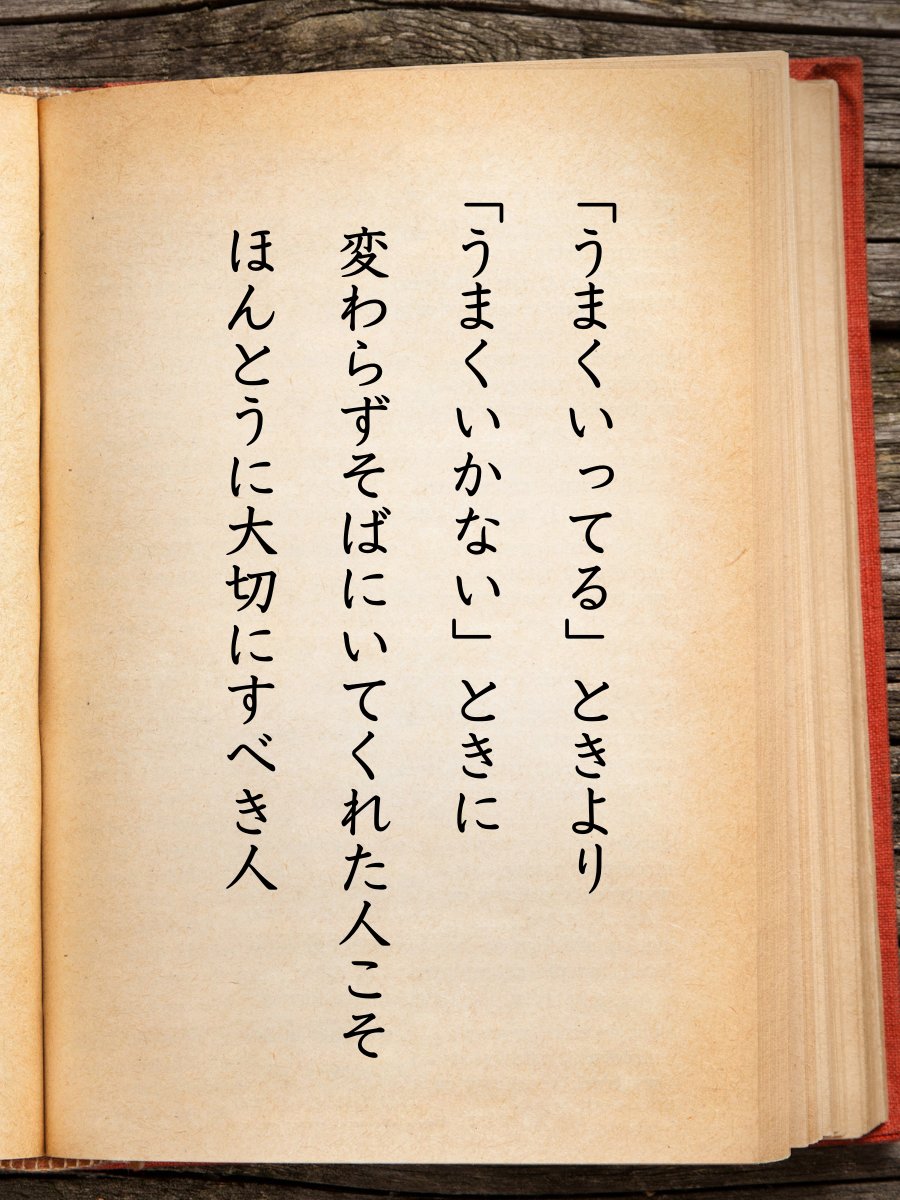 「うまくいってる」ときより
「うまくいかない」ときに
変わらずそばにいてくれた人こそ
ほんとうに大切にすべき人